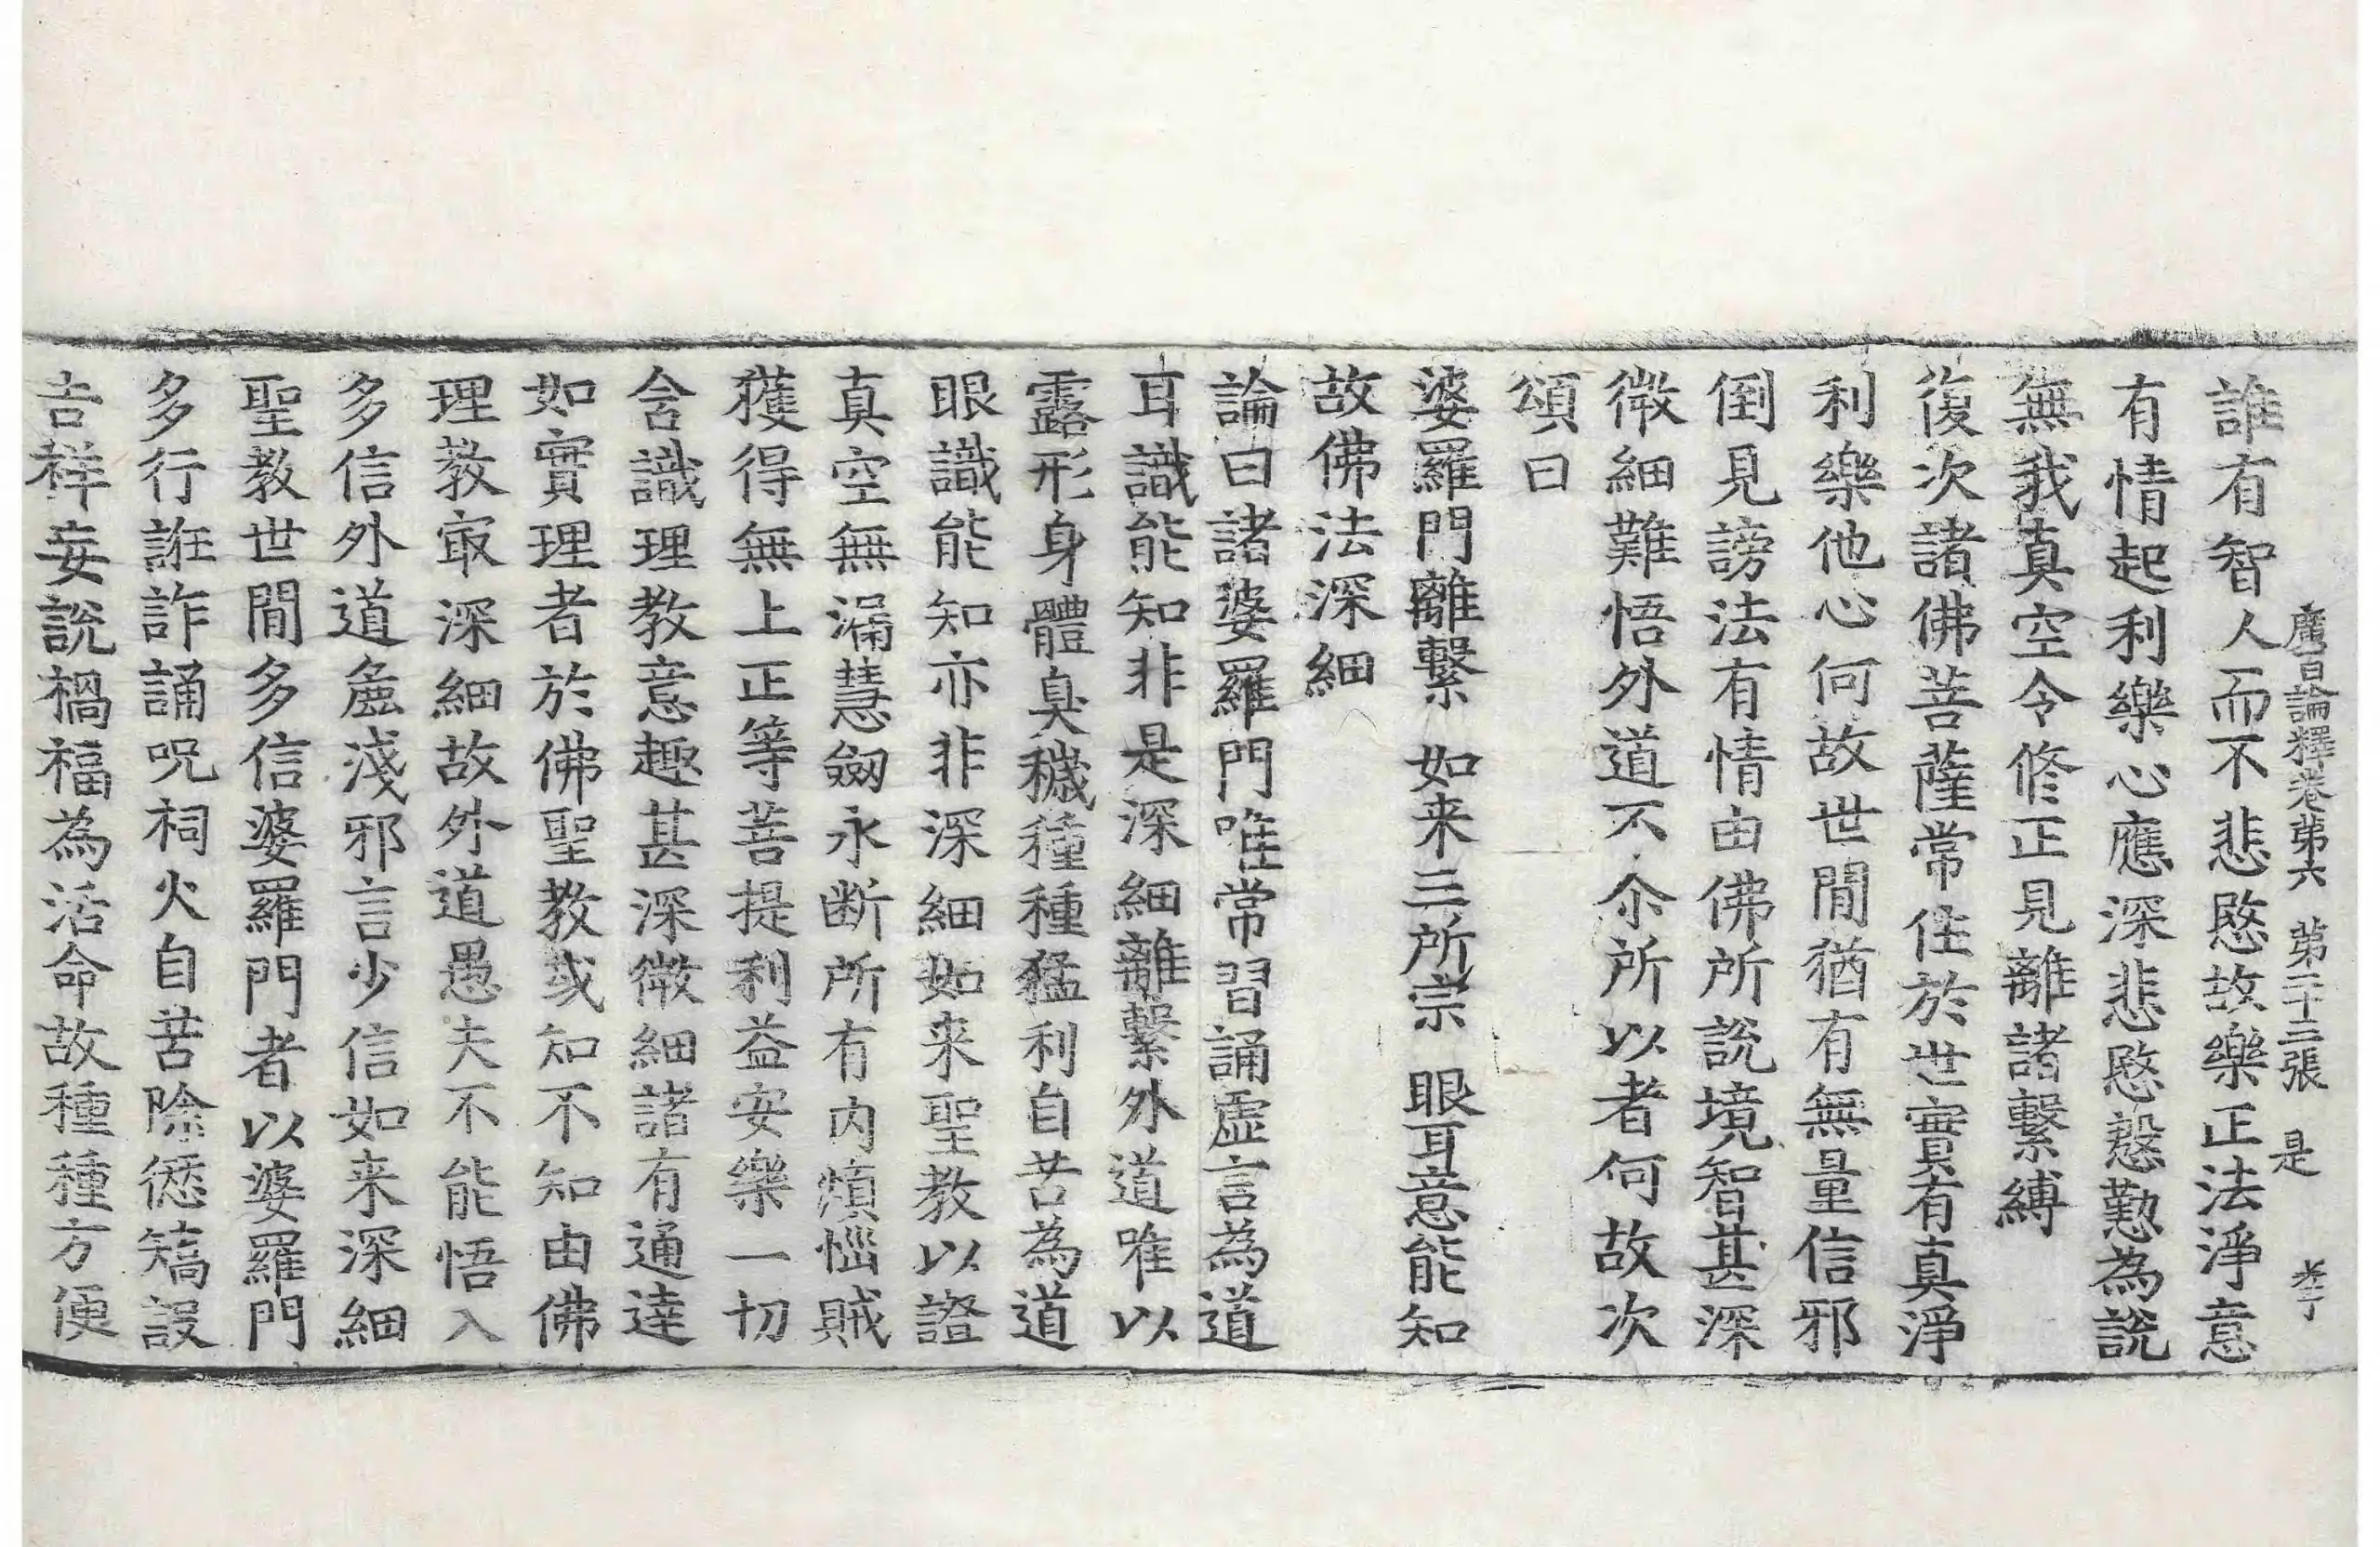 廣百論釋卷苐六 苐二十三張 是 孝丁
誰有智人而不悲愍故樂正法淨意
有情起利樂心應深悲愍慇懃為說
無我真空令修正見離諸繫縛
復次諸佛菩薩常住於世實有真淨
利樂他心何故世間猶有無量信邪
倒見謗法有情由佛所說境智甚深
微細難悟外道不尒所以者何故次
頌曰
婆羅門離繫 如来三所宗 眼耳意能知
故佛法深細
論曰諸婆羅門唯常習誦虛言為道
耳識能知非是深細離繫外道唯以
露形身體臭穢種種猛利自苦為道
眼識能知亦非深細如来聖教以證
真空無漏慧劒永断所有內煩惱賊
獲得無上正等菩提利益安樂一切
含識理教意趣甚深微細諸有通達
如實理者於佛聖教或知不知由佛
理教㝡深細故外道愚夫不能悟入
多信外道麁淺邪言少信如来深細
聖教世間多信婆羅門者以婆羅門
多行誑詐誦呪祠火自苦除愆矯設
吉祥妄說禍福為活命故種種方便